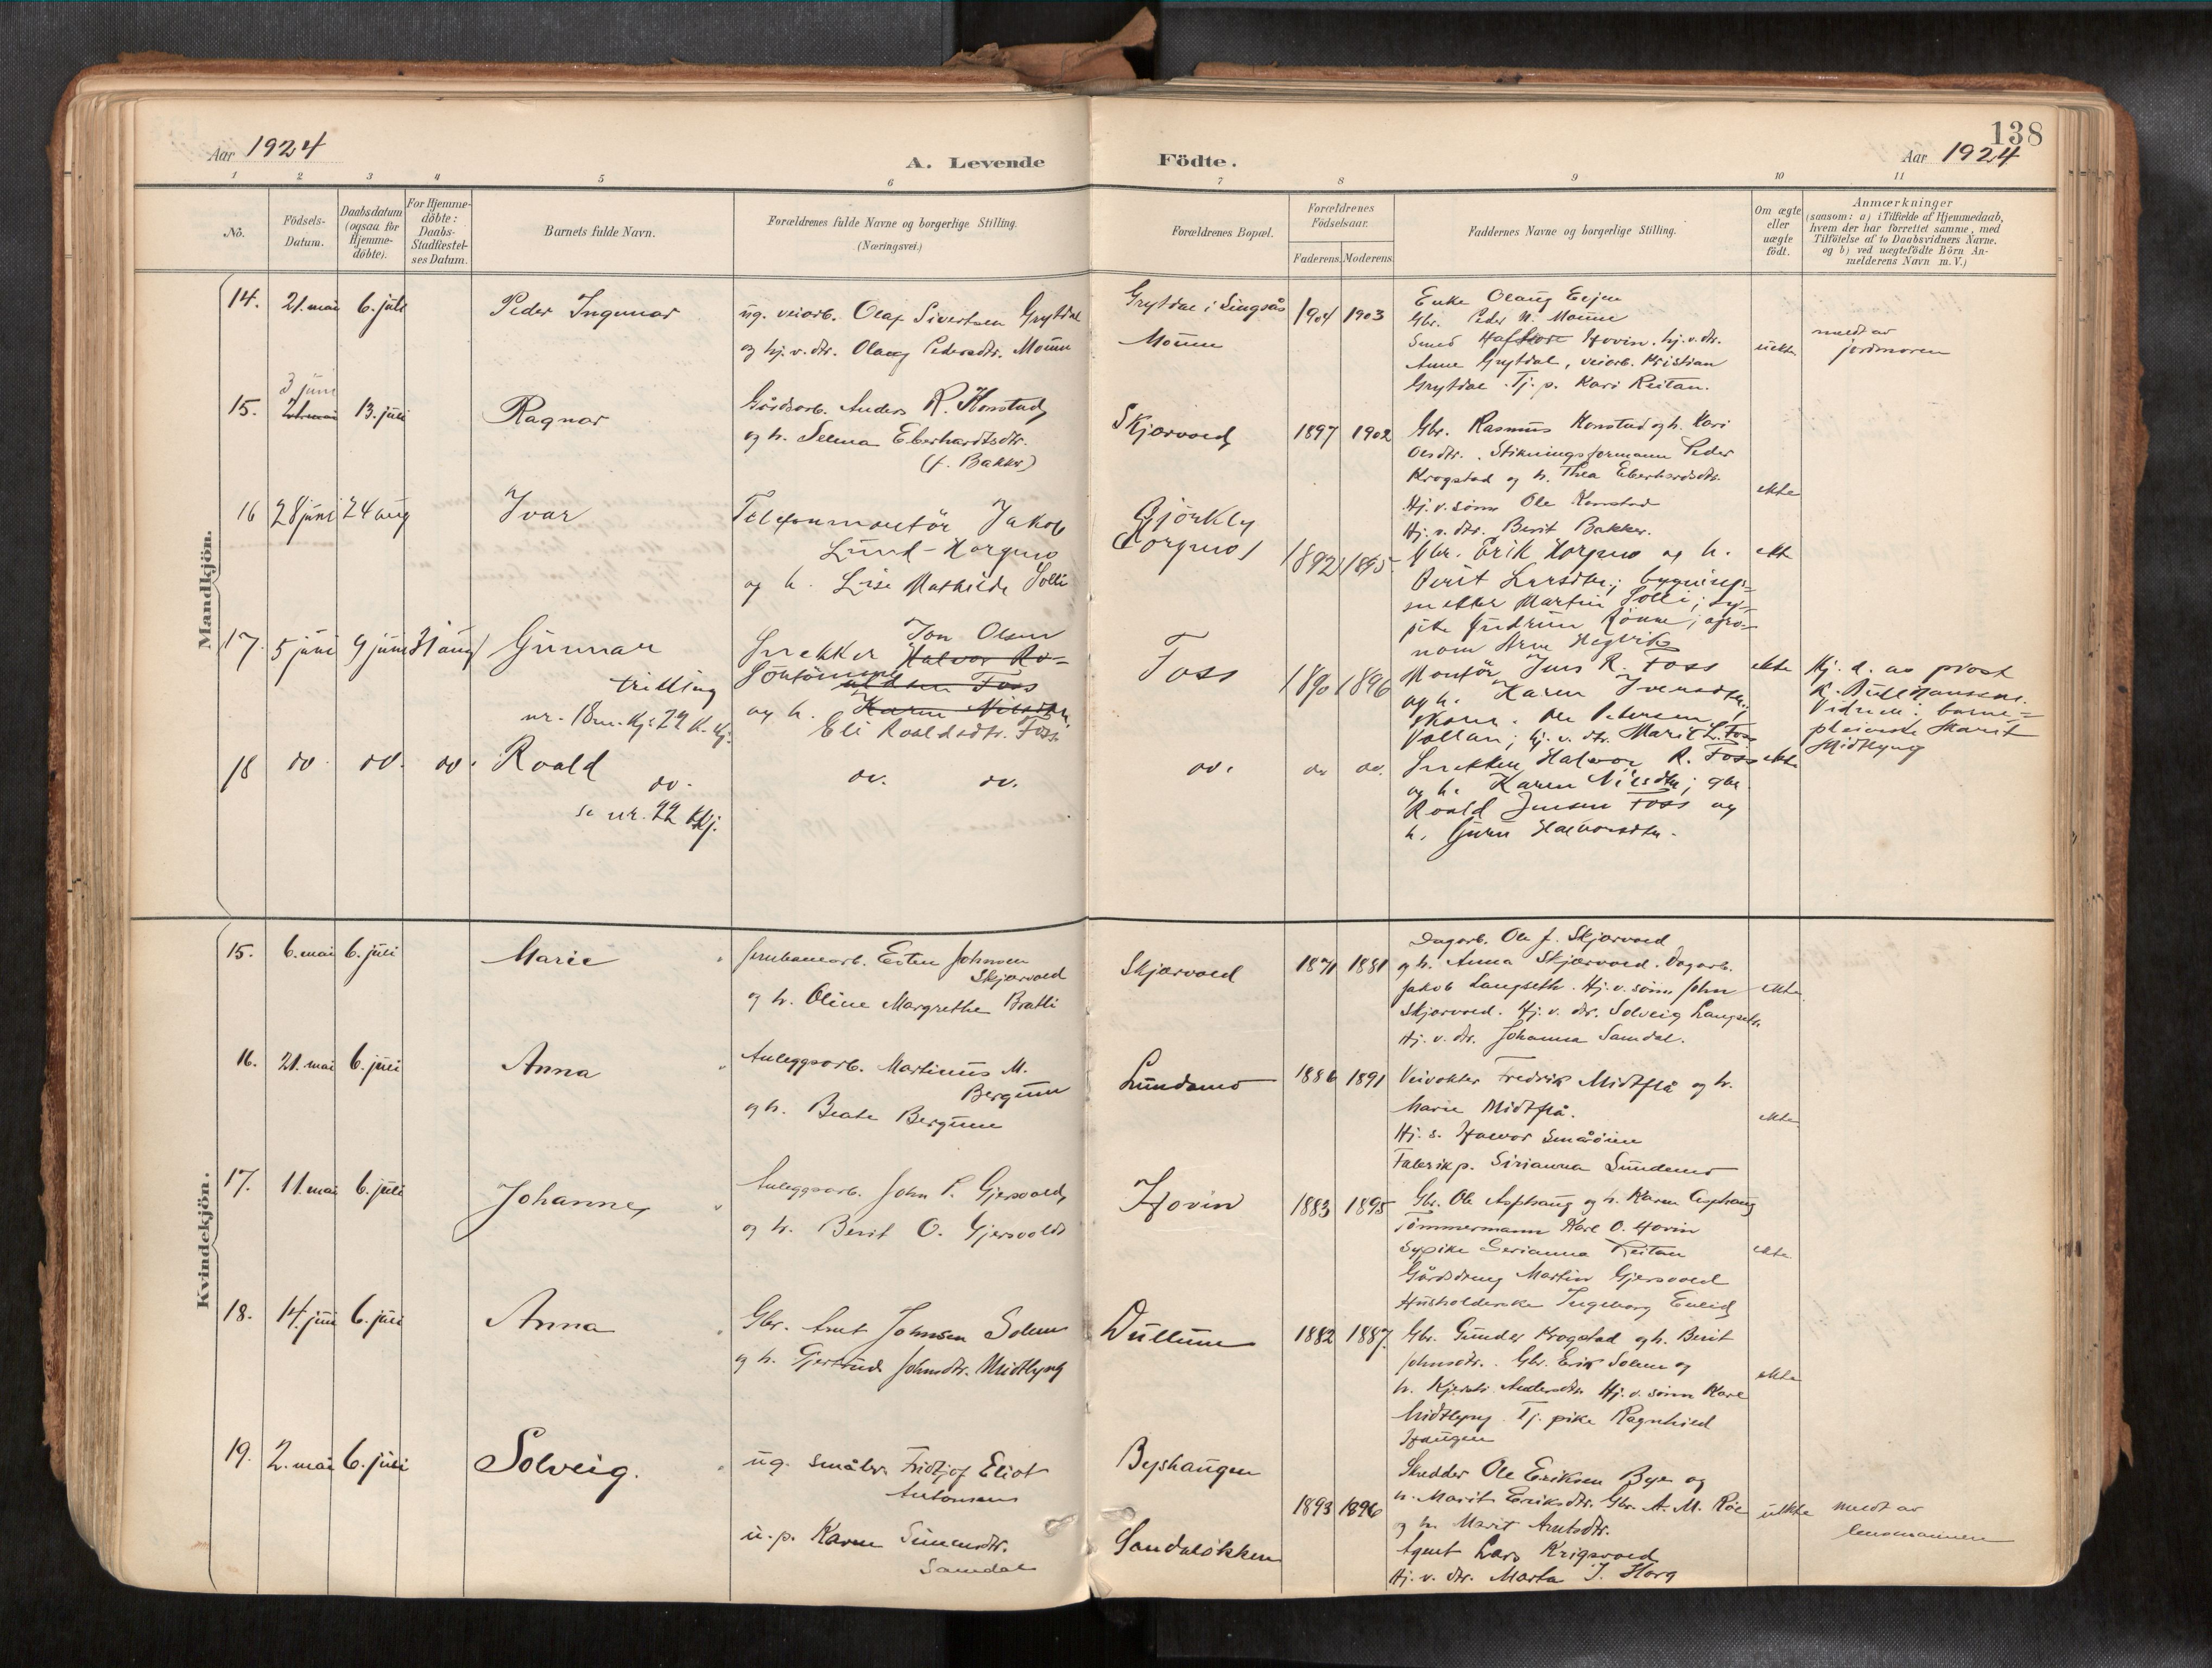 138
Aar 1924
A. Levende Födte.
Aar 1924
1 2 3 4 5 6 7 8 9 10 11
No.
Födsels-
Datum.
Daabsdatum
(ogsaa for
Hjemme-
döbte).
For Hjemme-
döbte:
Daabs-
Stadfestel-
ses Datum.
Barnets fulde Navn.
Forældrenes fulde Navne og borgerlige Stilling.
(Næringsvei.)
Forældrenes Bopæl.
Forældrenes
Födselsaar.
Faderens. Moderens.
Faddernes Navne og borgerlige Stilling.
Om ægte
eller
uægte
födt.
Anmærkninger
(saasom: a) i Tilfælde af Hjemmedaab,
hvem der har forrettet samme, med
Tilföielse af to Daabsvidners Navne.
og b) ved uægtefödte Börn An-
melderens Navn m. V.)
Mandkjön.
14. 21. mai 6. juli
Peder Ingunar
ug. veiarb. Olaf Sivertsen Grytdal
og hj. v. dtr. Olaug Pedersdtr. Moum
Grytdal i Singsås
Moum
1904 1903
Enke Olaug Eijen
Gbr. Peder N. Moum
Smed Hovin. hj. v. dtr.
Anne Grytdal, veiarb. Kristian
Grytdal. Tj. p. Kari Reitan.
uekte
meldt av
jordmoren
3 juni
15. 21. mai 13. juli
Ragnar
Gårdsarb. Anders R. Konstad
og h. Selma Eberhardtsdtr.
(f. Bakke)
Skjærvold
1897 1902
Gbr. Rasmus Konstad og h. Kari
Olsdtr. Stikningsformann Peder
Krogstad og h. Thea Eberhardsdtr.
Hj. v. sönn Ole Konstad
Hj. v. dtr. Berit Bakken.
ekte
16 28 juni 24 aug
Ivar
Telefonmontör Jakob
Lund-Horgmo
og h. Lise Mathilde Solli
Bjørkly
Horgmo
1892 1895
Gbr. Erik Horgmo og h.
Berit Larsdtr.; bygnings-
snekker Martin Solli; sy-
pike Gudrun Rönne; agro-
nom Arne Hegvik
ekte
17. 5 juni 9 juni 31 aug
Gunnar
trilling
nr. 18 m.kj. 22 k.kj.
Snekker Halvor Ro-
Jon Olsen
aldsen Foss
og h. Karen Nilsdtr.
Eli Roaldsdtr. Foss
Foss
1890 1896
Montör Jens R. Foss
og h. Karen Iversdtr.;
skom. Ole Petersen
Vollan; hj. v. dtr. Marit L. Foss
ekte
Hj. d. av prost
K. Bull Hanssen.
Vidner: barne-
pleierske Marit
Midtlyng
18 do. do. do.
Roald
do.
se nr. 22 Kkj.
do. do.
do.
do. do.
Snekker Halvor R. Foss
og h. Karen Nilsdtr; gbr.
Roald Jensen Foss og
h. Guru Halvorsdtr.
ekte
Kvindekjön.
15. 6. mai 6. juli
Marie
Jernbanearb. Esten Johnsen
Skjærvold
og h. Oline Margrethe Bratli
Skjærvold
1871 1881
Dagarb. Ole J. Skjærvold
og h. Anna Skjærvold. Dagarb.
Jakob Langseth. Hj. v. sönn John
Skjærvold. Hj. v. dtr. Solveig Langseth.
Hj. v. dtr. Johanna Samdal.
ekte
16. 21. mai 6. juli
Anna
Anleggsarb. Martinus M.
Bergum
og h. Beate Bergum
Lundamo
1886 1891
Veivokter Fredrik Midtflå og h.
Marie Midtflå.
Hj. s. Halvor Småöien
Fabrikp. Sirianna Lundamo
ekte
17. 11. mai 6. juli
Johanne
Anleggsarb. John P. Gjersvold
og h. Berit O. Gjersvold
Hovin
1883 1895
Gbr. Ole Asphaug og h. Karen Asphaug
Tömmermann Karl O. Hovin
Sypike Serianna Reitan
Gårdsdreng Martin Gjersvold
Husholderske Ingeborg Enlid
ekte
18. 14. juni 6. juli
Anna
Gbr. Arnt Johnsen Solem
og h. Gjertrud Johnsdtr. Midtlyng
Dullum
1882 1887.
Gbr. Gunder Krogstad og h. Berit
Johnsdtr. Gbr. Erik Solem og
h. Kjersti Andersdtr. Hj. v. sönn Karl
Midtlyng. Tj. pike Ragnhild
Haugen
ekte
19. 2. mai 6. juli
Solveig.
ug. småbr. Fridtjof Eliot
Antonsen
u. p. Karen Simensdtr.
Samdal
Byshaugen
Sandaløkken
1893 1896
Skredder Ole Eriksen Bye og
h. Marit Eriksdtr. Gbr. A. M. Röe
og h. Marit Arntsdtr.
Agent Lars Krigsvold
Hj. v. dtr. Marta J. Horg
uekte
meldt av
lensmannen